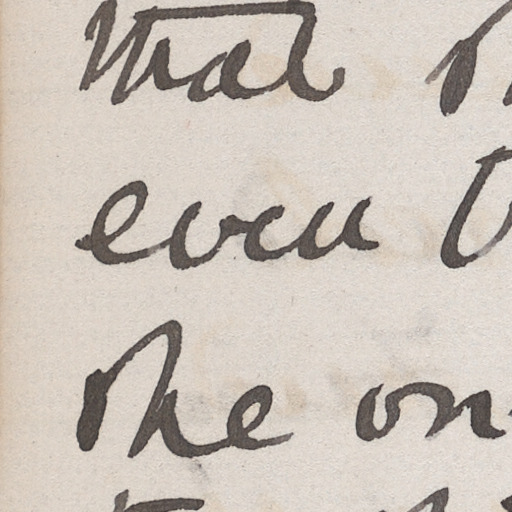 that
even
she on